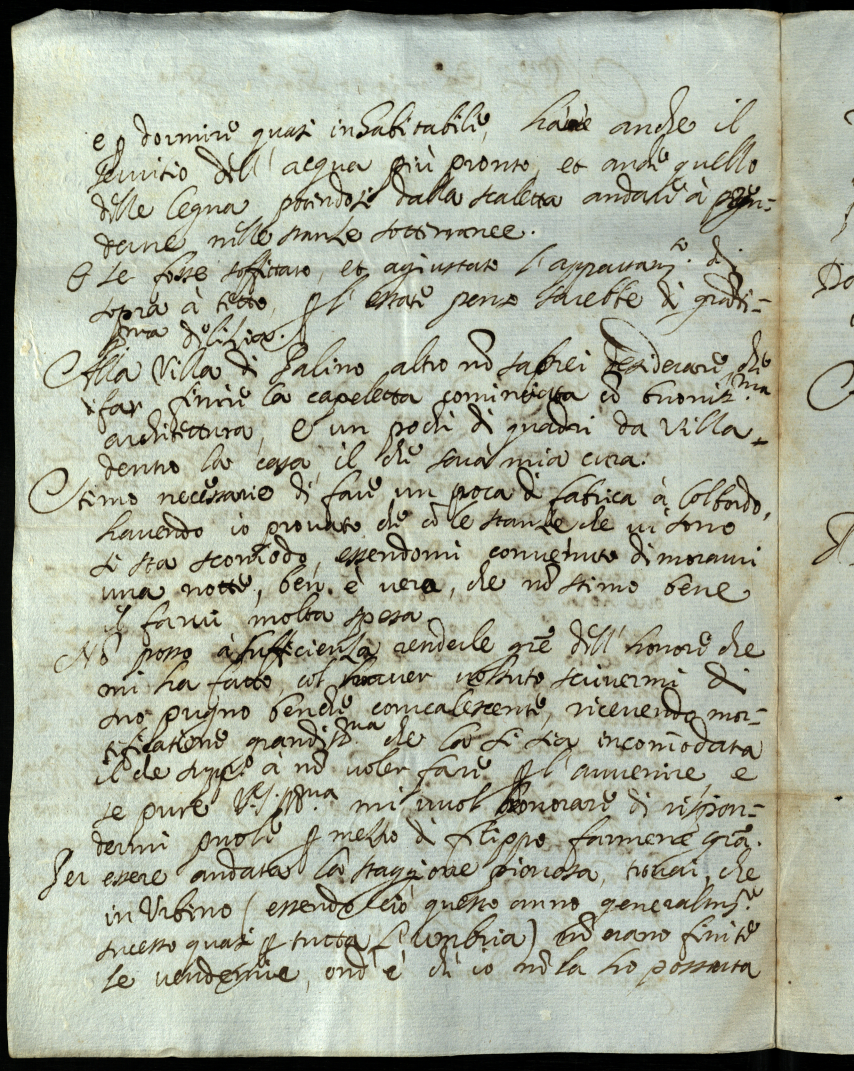 e p dormire quasi inhabitabili, have anche il
servitio dell' acqua più pronto, et anche quello
delle legna potendosi dalla scaletta andare à pren=
derne nelle stanze sotterranee.
E se fosse soffittato, et agiustato l'appartam.to di
sopra à tetto, p l'estate penso sarebbe di grandi=
ss.ma delizia.
Alla Villa di Palino altro nõ saprei desiderare, che
far finire la capeletta cominciata cõ buoniss.ma
architettura, e un pochi di quadri da Villa
dentro la casa il che sarà mia cura.
Stimo necessario di fare un poca di fabrica à Colbordo,
havendo io provato che cõ le stanze che vi sono
si sta scomodo, essendomi convenuto dimorarvi
una notte, ben è vero, che nõ stimo bene
il farvi molta spesa.
Nõ posso à sufficienza renderle grẽ dell' honore che
mi ha fatto col haver voluto scrivermi di
suo pugno benche convalescente, ricevendo mor=
tificatione grandiss.ma che la si sia incomodata
il che supp.o à nõ voler fare p l'avvenire e
se pure V.S. Ill.ma mi vuol honorare di rispon=
dermi puole p mezzo di Filippo farmene grã.
Per essere andata la staggione piovosa, trovai, che
in Urbino (essendo ciò questo anno generalm.te
sucesso quasi p tutta l'Umbria) nõ erano finite
le vendemie, ond' è ch' io nõ la ho possuta